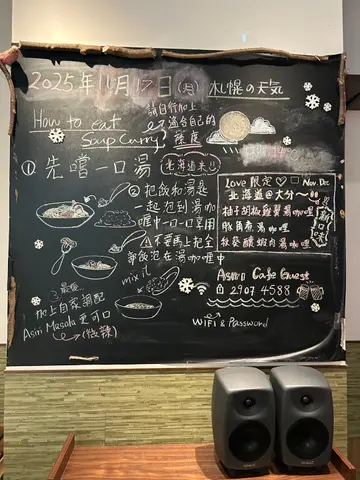 2025年11月17日(月) 札幌の天気
How to eat
Soup Curry
請自行加上
適合自己的
辣度
① 先嚐一口湯
北海道来!!
② 把飯和湯是
一起泡到湯咖
喱中一口一口享用
⚠不要馬上把全
部飯泡在湯咖喱中
mix it
③ 最後
加上自家調配
Asiri Masala更可口
(微辣)
Love 限定♡ Nov. Dec
北海道@大分~
柚子胡椒雞髀湯咖喱
豚角煮湯咖喱
牧葵釀蝦肉湯咖喱
Astro Cafe Guest
2907 4588
WiFi & Password